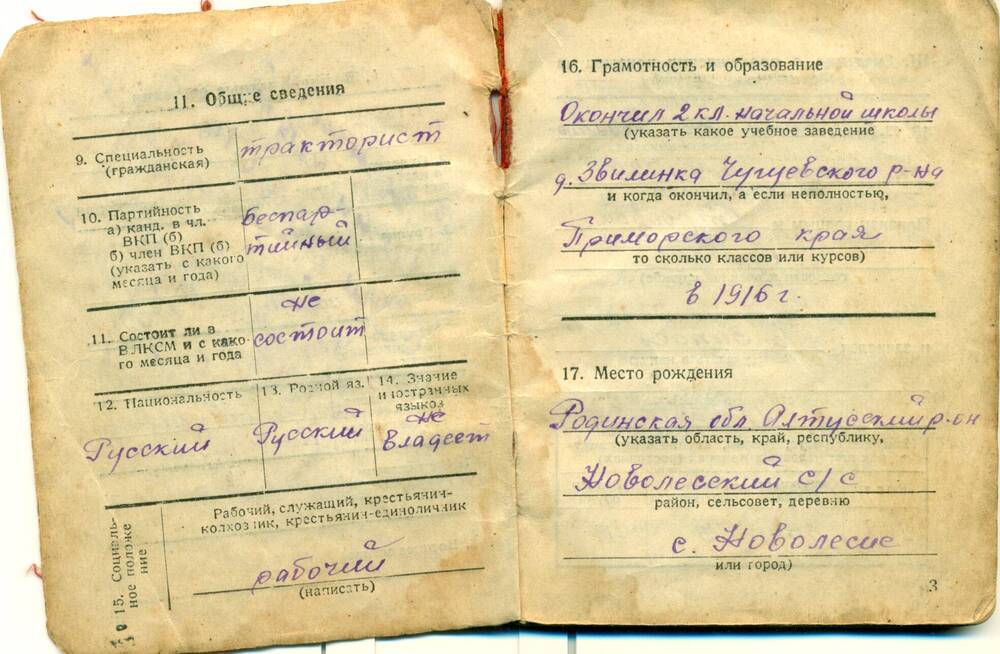 11. Общие сведения
9. Специальность
(гражданская)
тракторист
10. Партийность
а) канд. в чл.
ВКП (б)
б) член ВКП (б)
(указать с какого
месяца и года)
беспар-
тийный
11. Состоит ли в
ВЛКСМ и с како-
го месяца и года
не
состоит
12. Национальность
Русский
13. Родной яз.
Русский
14. Знание
иностранных
языков
не
владеет
15. Социаль-
ное положе
ние
Рабочий, служащий, крестьянин-
колхозник, крестьянин-единоличник
рабочий
(написать)
16. Грамотность и образование
Окончил 2 кл. начальной школы
(указать какое учебное заведение
д. Звилинка Чугуевского р-на
и когда окончил, а если неполностью,
Приморского края
то сколько классов или курсов)
в 1916 г.
17. Место рождения
Родинская обл Алтусский р-он
(указать область, край, республику,
Новолесский с/с
район, сельсовет, деревню
с. Новолесие
или город)
3